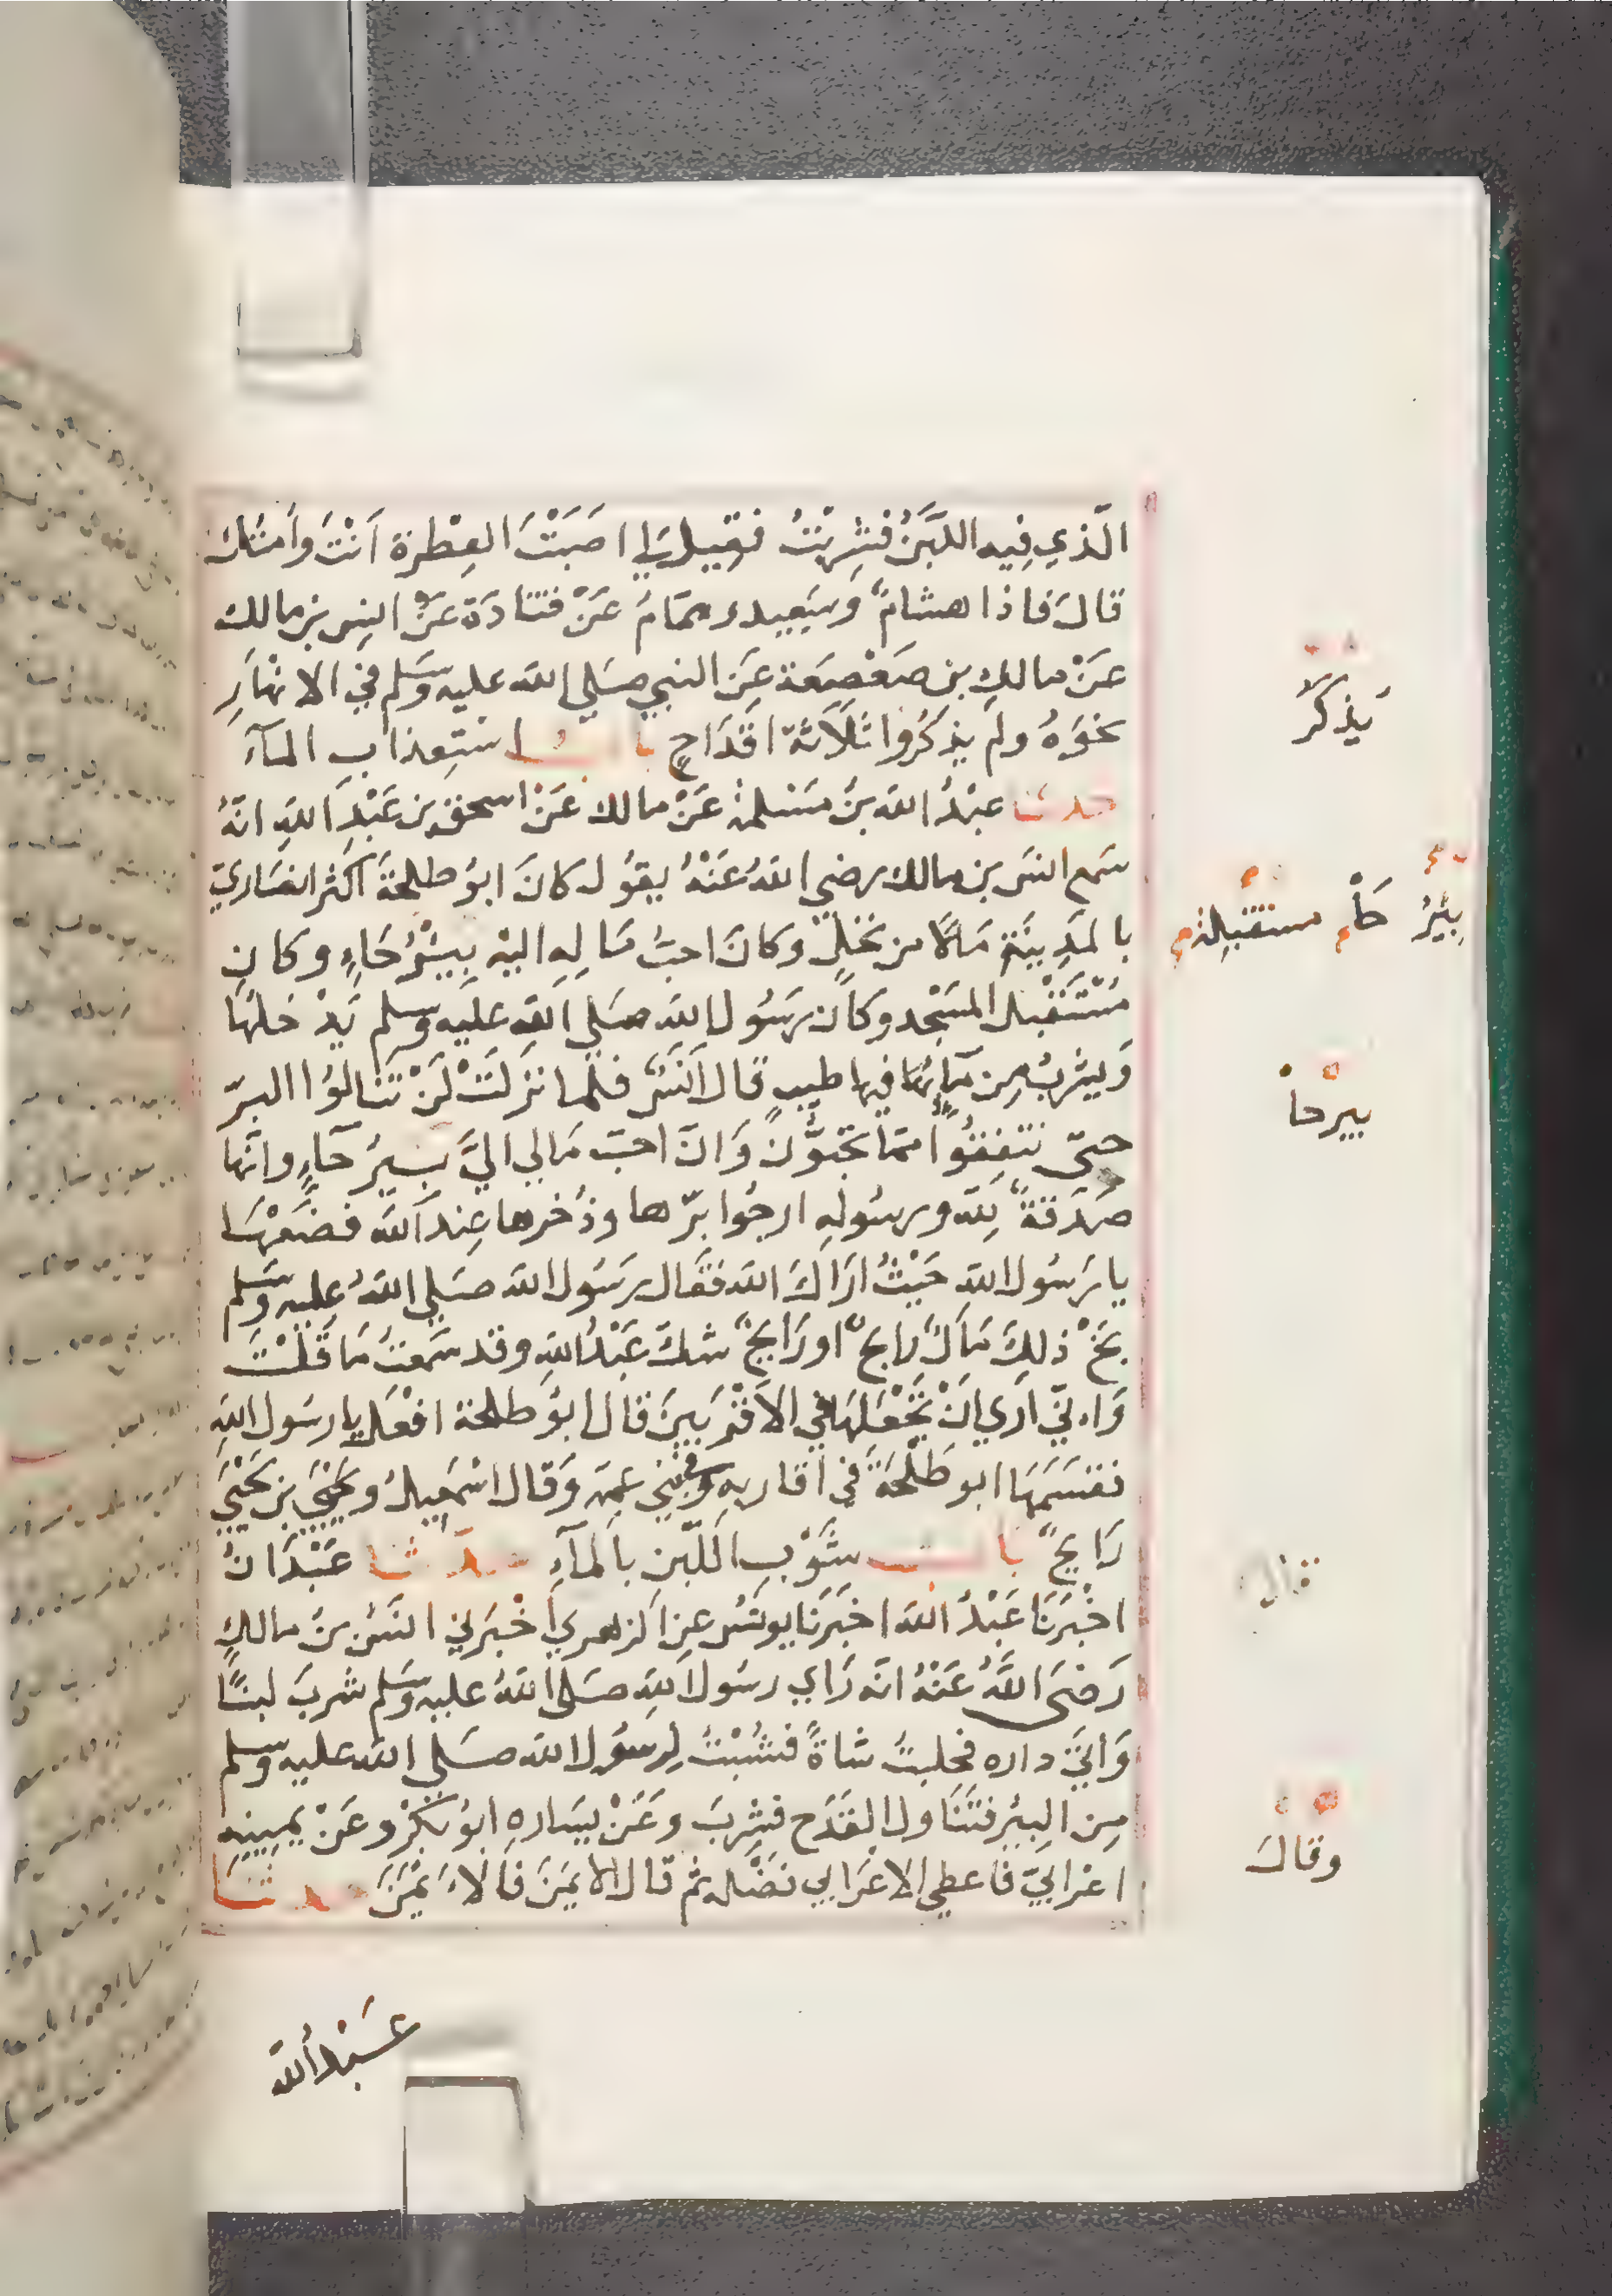 الَّذِي فِيهِ اللَّبَنُ فَشَرِبْتُ فَقِيلَ لِي اصَبْتَ الفِطْرة اَنْتَ وَاُمتُكَ
قالَ فاذا هشامٌ وسَعِيد وهمّامُ عَنْ قتَادَة عَنْ انسِ بن مالك
عَنْ مالكِ بن صَعْصعَة عَن النبي صَلي الله عليه وسَلم في الانهَارِ
نحوَهُ ولم يذكُرُوا ثَلاَثة اقدَاحٍ بابُ استِعذاب المآءَ
حدثنا عبْدُ الله بنُ مَسْلمة عَنْ مالك عَنْ اسحق بن عَبْدِ اللهِ انّهُ
سَمع انسَ بن مالك رضي اللهُ عَنْهُ يقوُل كانَ ابوُ طلحَةَ اكثر انصَاريّ
بالمَدِينَةِ مَالاً من نخلٍ وكانَ احبُّ مَالِهِ اليْهِ بِيْرُحَاءٍ وكان
مُسْتَقْبلَ المسَجْد وكان رسُول اللهِ صَلي الله عليه وسلم يَدْخلهَا
وَيشربُ مِن مآئها فيها طيبٍ قال اَنَسٌ فلما نزلتْ لَنْ تنَالوُا البرّ
حتىّ تنفِقُوا ممّا تحُبّوُنَ وَانّ احبّ مَالي اليَّ بِيرُحَآءٍ وانّها
صَدَقةٌ لله ورسُولهِ ارجُوا برّها وذُخرها عِند الله فضَعْهَا
يا رَسُول الله حَيْثُ ارَاكَ الله فقَال رسَول الله صَلي اللهُ عليه وسَلم
بَخْ ذلِكَ مَالٌ رابحٌ اورَايحٌ شكَ عَبْدُ اللهِ وقد سَمعتُ مَا قُلْتَ
وَانيّ اَري اَنْ تجْعَلهَا في الاَقْربَينَ قال ابوُ طلحة افعَل يا رسَول اللهِ
فقسَمَهَا ابو طَلْحَةَ في اقاربِهِ وفي بني عمِهِ وَقال اسْمَعِيلُ ويحْيَي بن يَحْيَي
رَايحٌ بابُ شَوْبِ اللَّبَنِ بالمآءِ حدثنا عَبْدَانُ
اخْبَرَنَا عَبْدُ الله اخبَرنَا يونُس عن الزهري اَخْبَرني انسُ بنُ مالكٍ
رَضيَ اللهُ عَنْهُ انه رَاي رسَول الله صَلي اللهُ عليه وسَلم شربَ لبنًا
وَاتيَ داره فحلبتُ شاةً فشُبْتُ لِرسَول الله صَلي الله عليه وسلم
مِن البيْرِ فتَنَاول القَدَح فشربَ وعَنْ يسَارهِ ابوُ بَكْرٍ وعَنْ يمينِهِ
اعرَابيّ فاعطي الاعرَابي فَضْلَه ثم قال الايمَنَ فالاَيمَنَ حدثنَا
عَبْدُ الله
يَذكرُ
بِئْرُ حَاْ مستقبِلة
بيرحا
قال
وقالَ